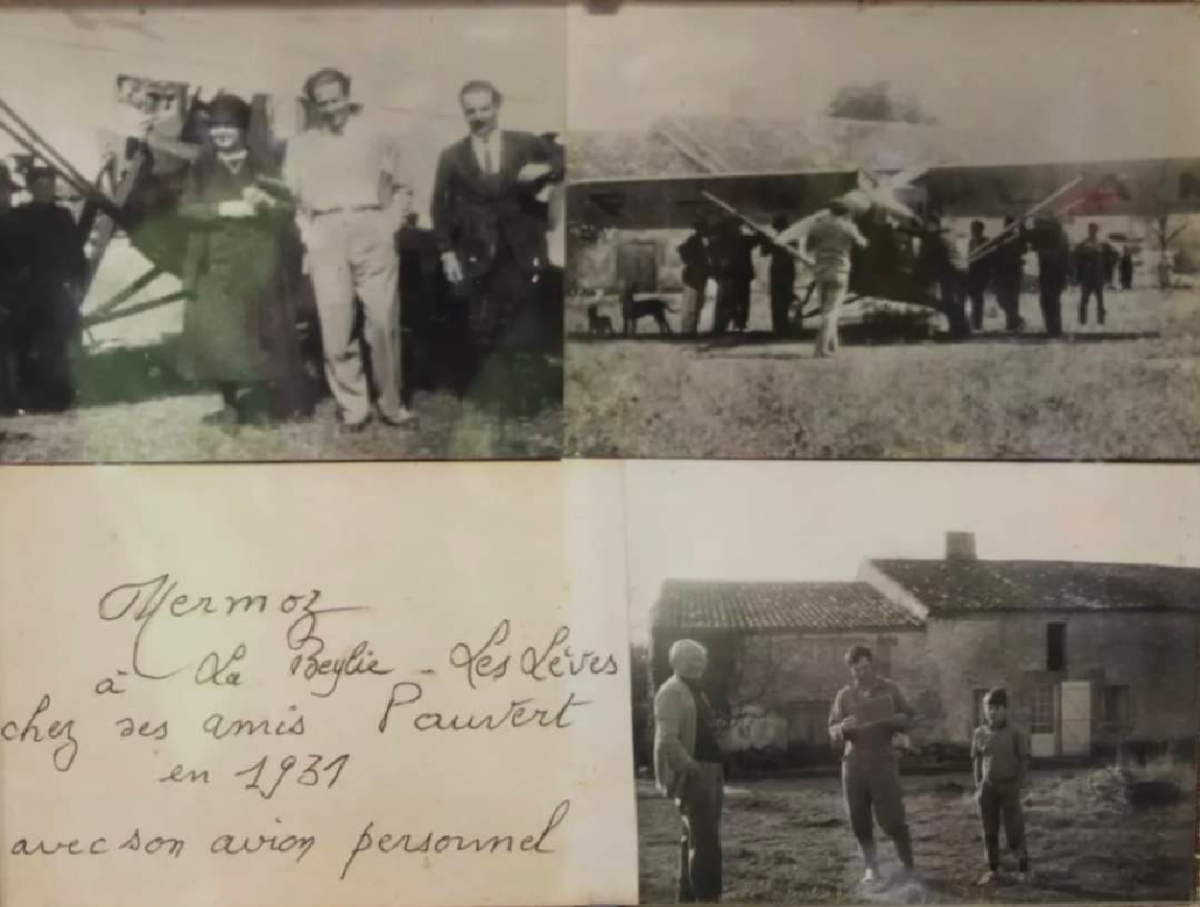 Mermoz
à La Beylie - Les Lèves
chez ses amis Pauvert
en 1931
avec son avion personnel